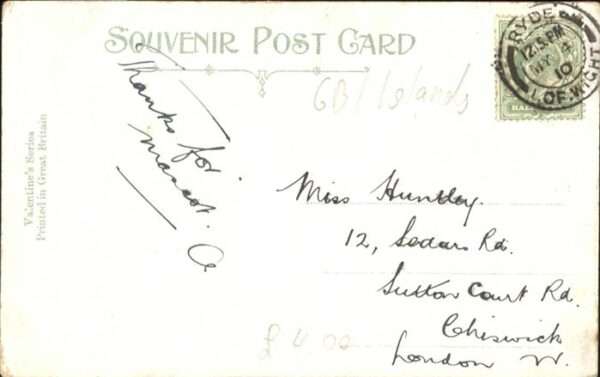 SOUVENIR POST CARD
RYDE
12.15 PM
MY 4
10
I. OF. WIGHT
HAL
GB/Islands
Thanks for
mascot. A
Miss Huntley
12, Sedars Rd.
Sutton Court Rd.
Chiswick
London W.
£4.00
Valentine's Series
Printed in Great Britain